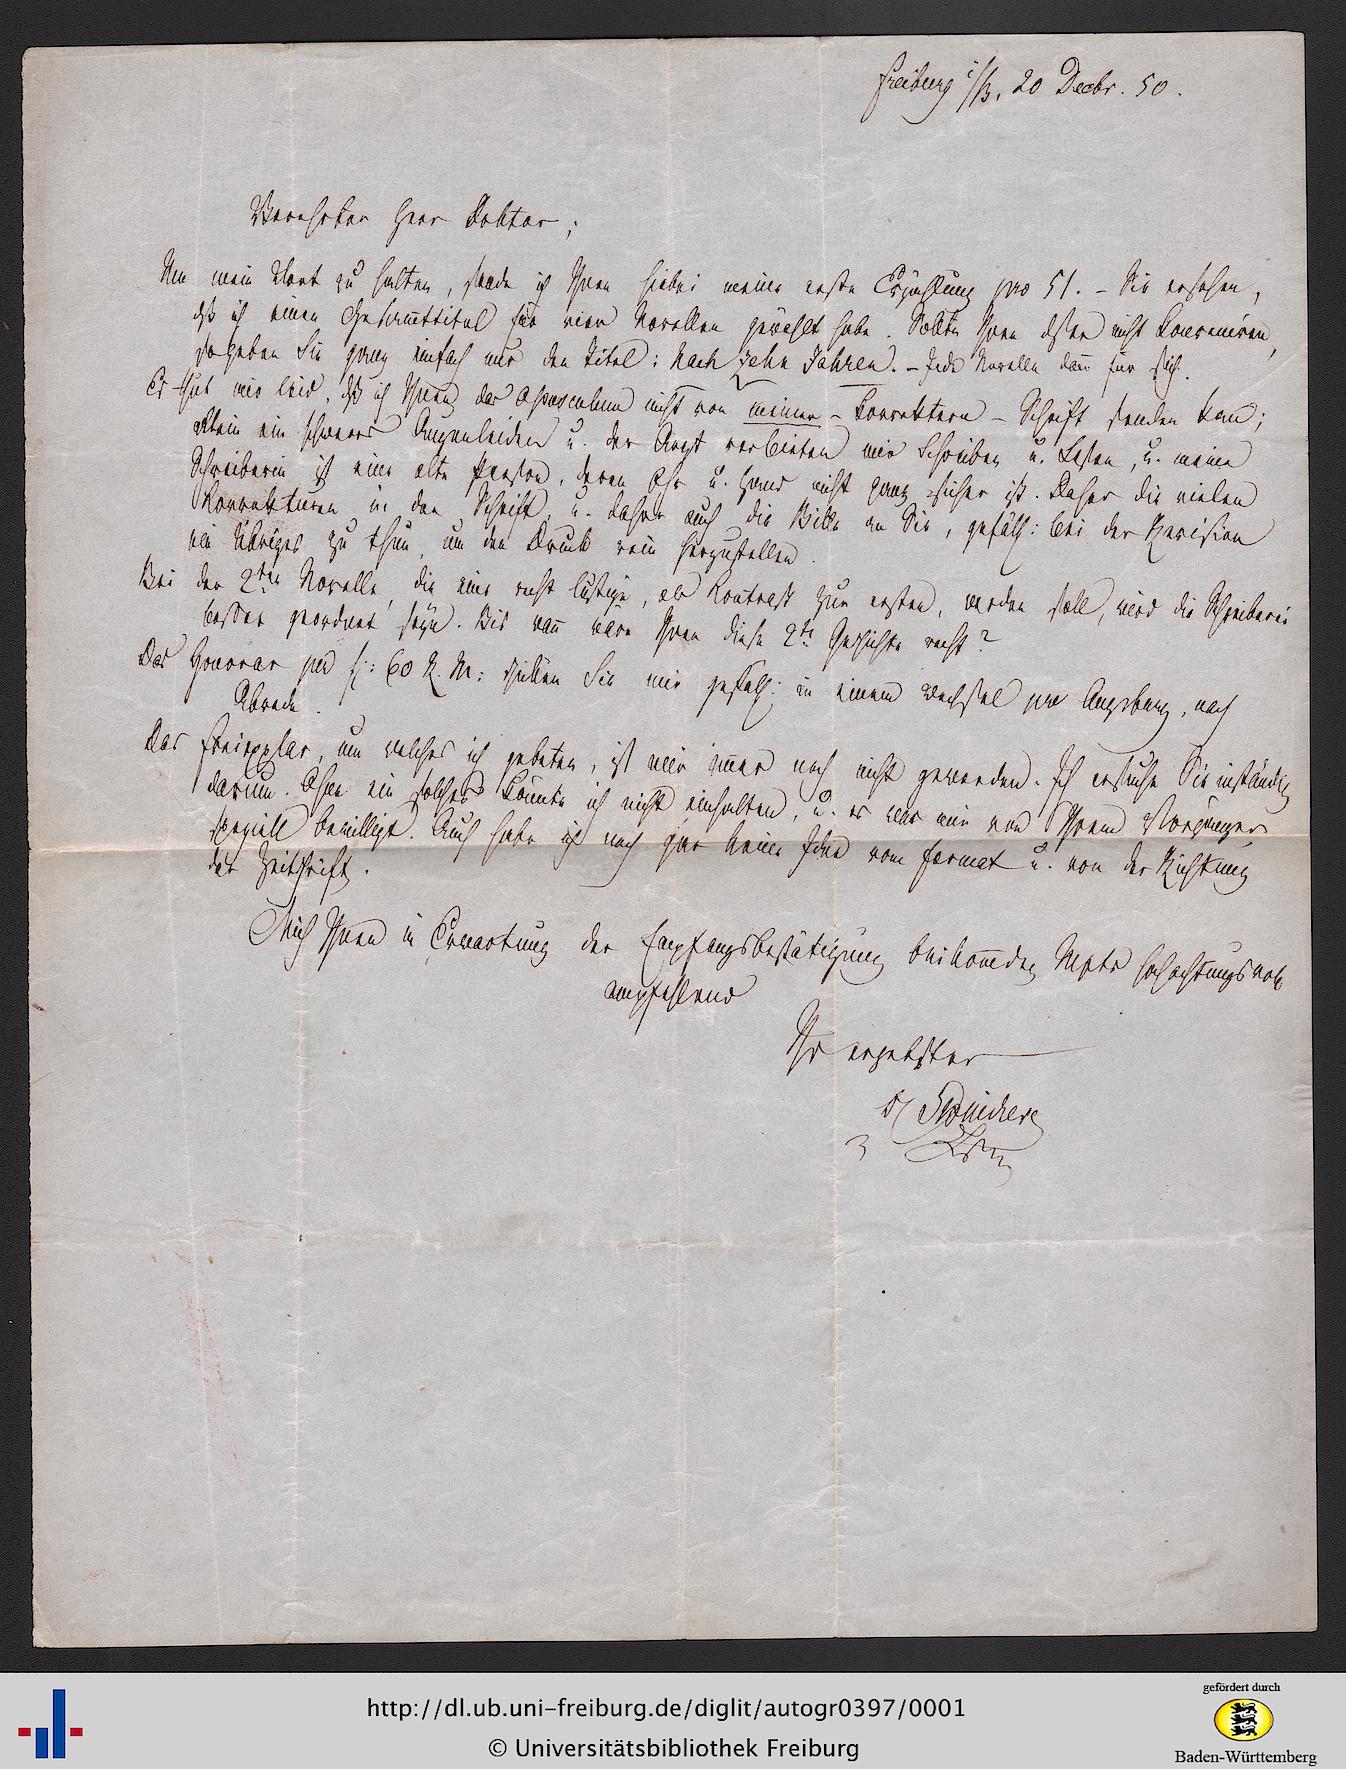 Freiburg i/B, 20 Decbr. 50.
Verehrter Herr Doktor;
Um mein Wort zu halten, sende ich Ihnen hiebei meine erste Erzählung pro 51. – Sie ersehen,
dß ich einen Gesam̅ttitel für vier Novellen gewählt habe. Sollte Ihnen dßer nicht konveniren,
so geben Sie ganz einfach nur den Titel: Nach zehn Jahren. – Jede Novelle dan̅ für sich.
Es thut mir leid, dß ich Ihnen das Opusculum nicht von meiner – korrektern – Schrift senden kan̅;
allein ein schweres Augenleiden u. der Arzt verbieten mir Schreiben u. Lesen, u. meine
Schreiberin ist eine alte Person, deren Ohr u. Hand nicht ganz sicher ist. Daher die vielen
Korrekturen in der Schrift, u. daher auch die Bitte an Sie, gefäll: bei der Revision
ein Übriges zu thun, um den Druck rein herzustellen.
Bei der 2ten Novelle, die eine recht lustige, als Kontrast zur ersten, werden soll, wird die Schreiberei
besser geordnet seyn. Bis wan̅ wäre Ihnen diese 2te Geschichte recht?
Das Honorar per f: 60 K. M: schicken Sie mir gefäll: in einem Wechsel pr Augsburg, nach
Abrede.
Das Freiexplar, um welches ich gebeten, ist mir im̅er noch nicht geworden. Ich ersuche Sie inständig
darum. Ohne ein solches kön̅te ich nicht einhalten, u. es war mir von Ihrem Vorgänger
speziell bewilligt. Auch habe ich noch gar keine Idee vom Format u. von der Richtung
der Zeitschrift.
Mich Ihnen in Erwartung der Empfangsbestätigung beikom̅enden Mpts hochachtungsvoll
empfehlend
Ihr ergebster
http://dl.ub.uni-freiburg.de/diglit/autogr0397/0001
© Universitätsbibliothek Freiburg
gefördert durch
Baden-Württemberg